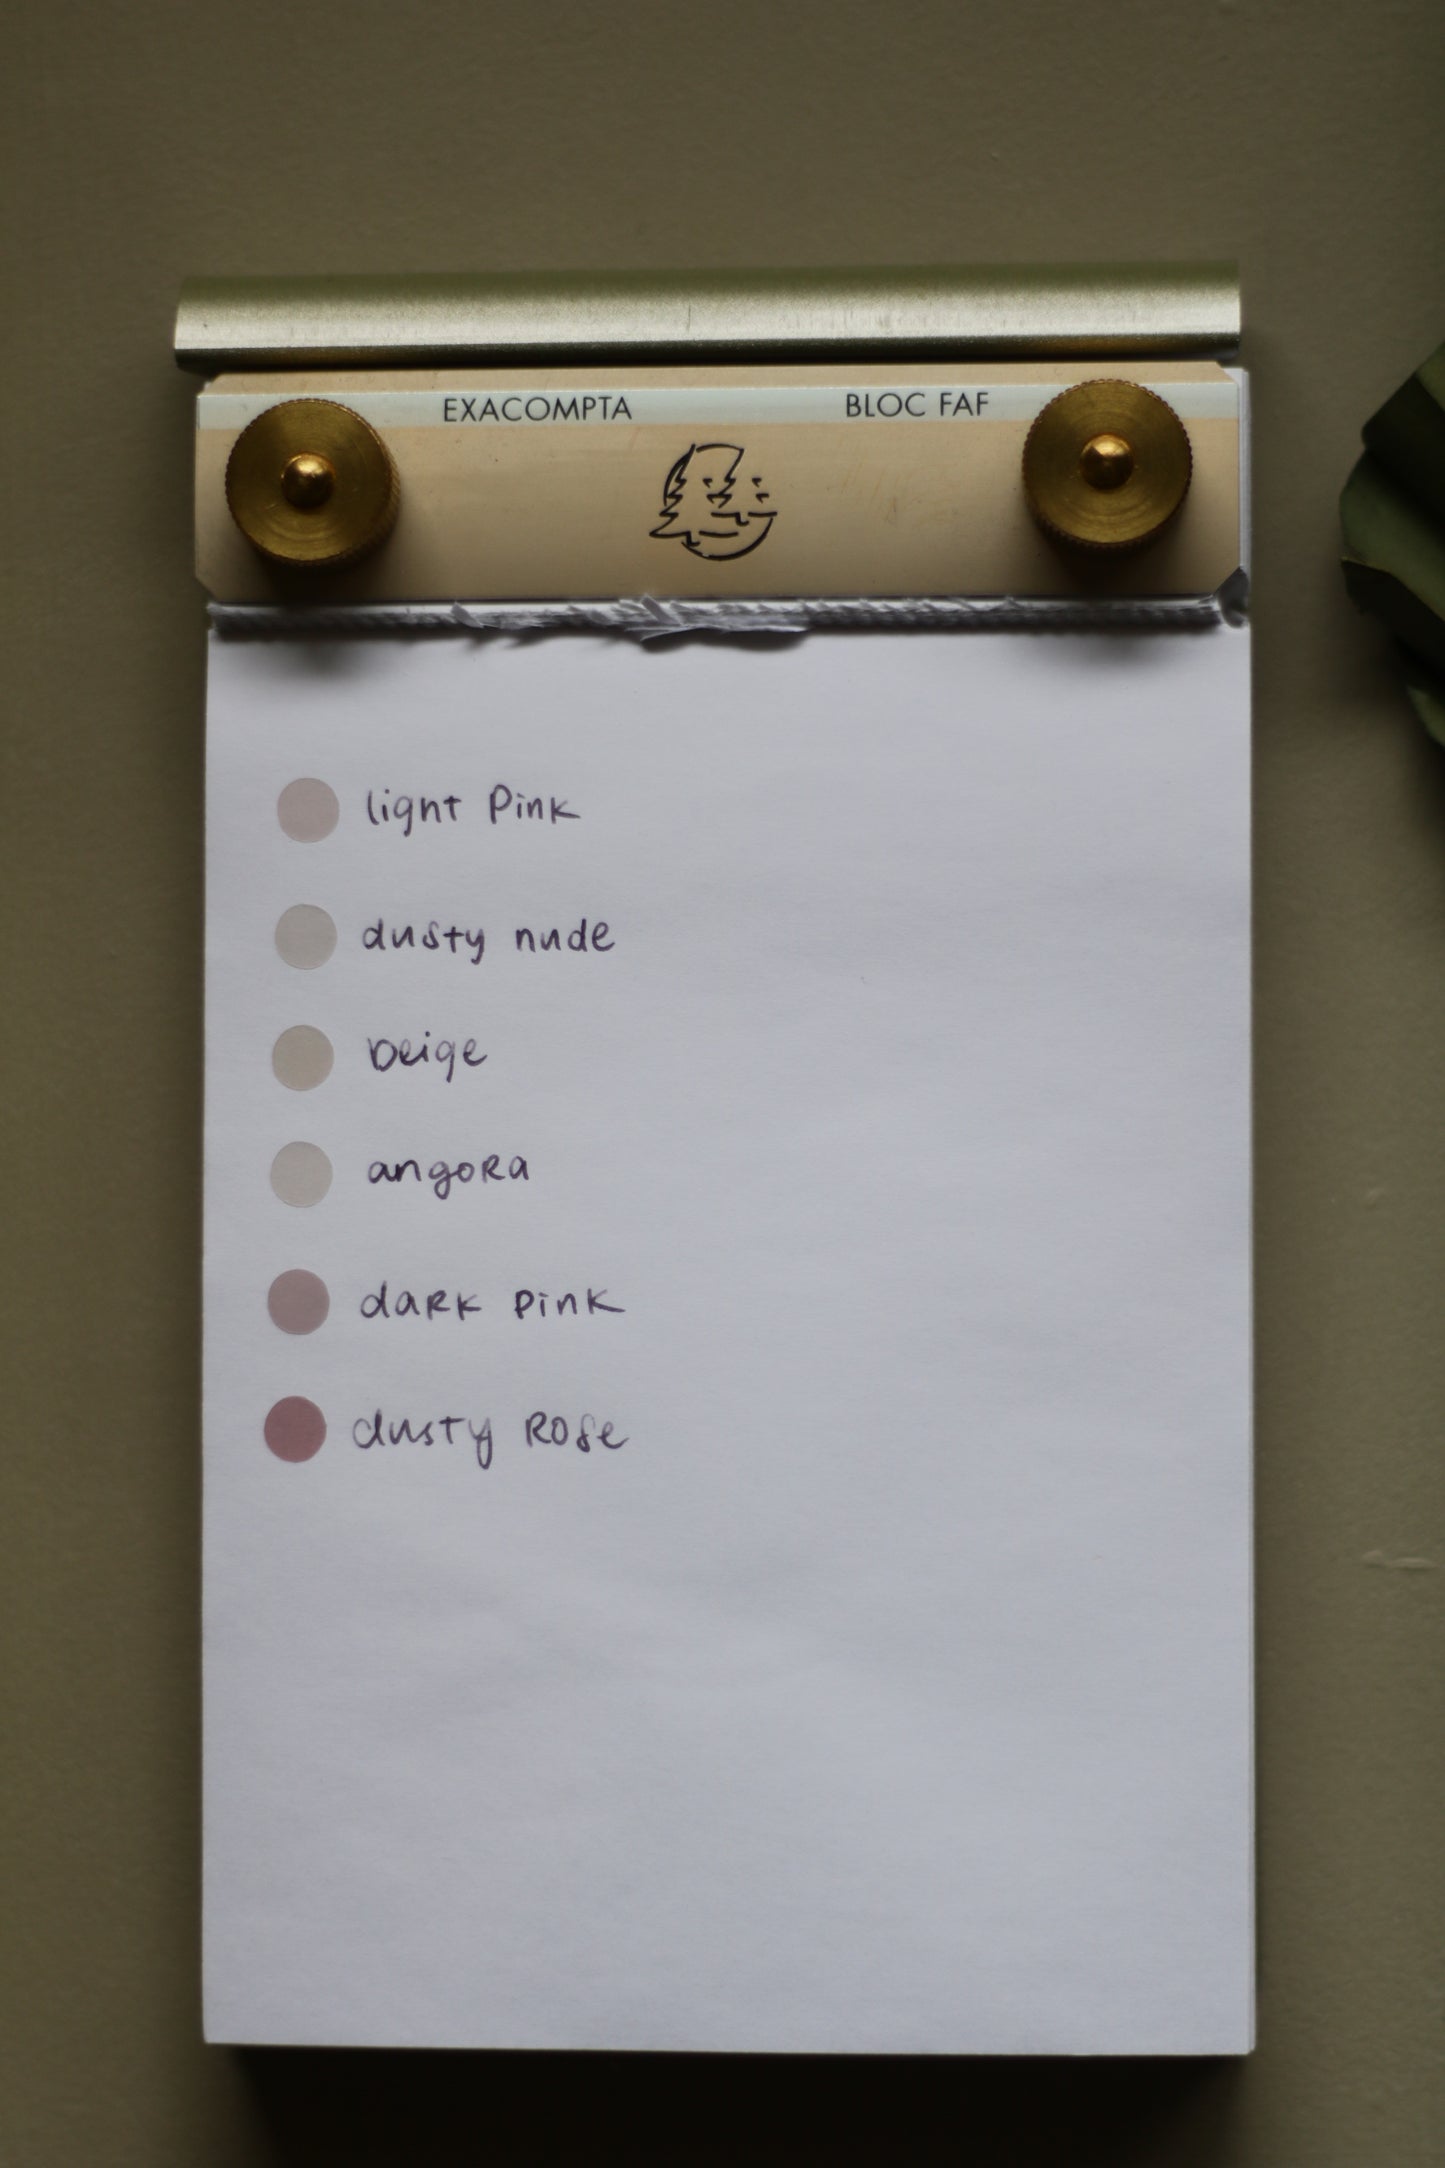 EXACOMPTA BLOC FAF
light Pink
dusty nude
beige
angora
dark pink
dusty Rose